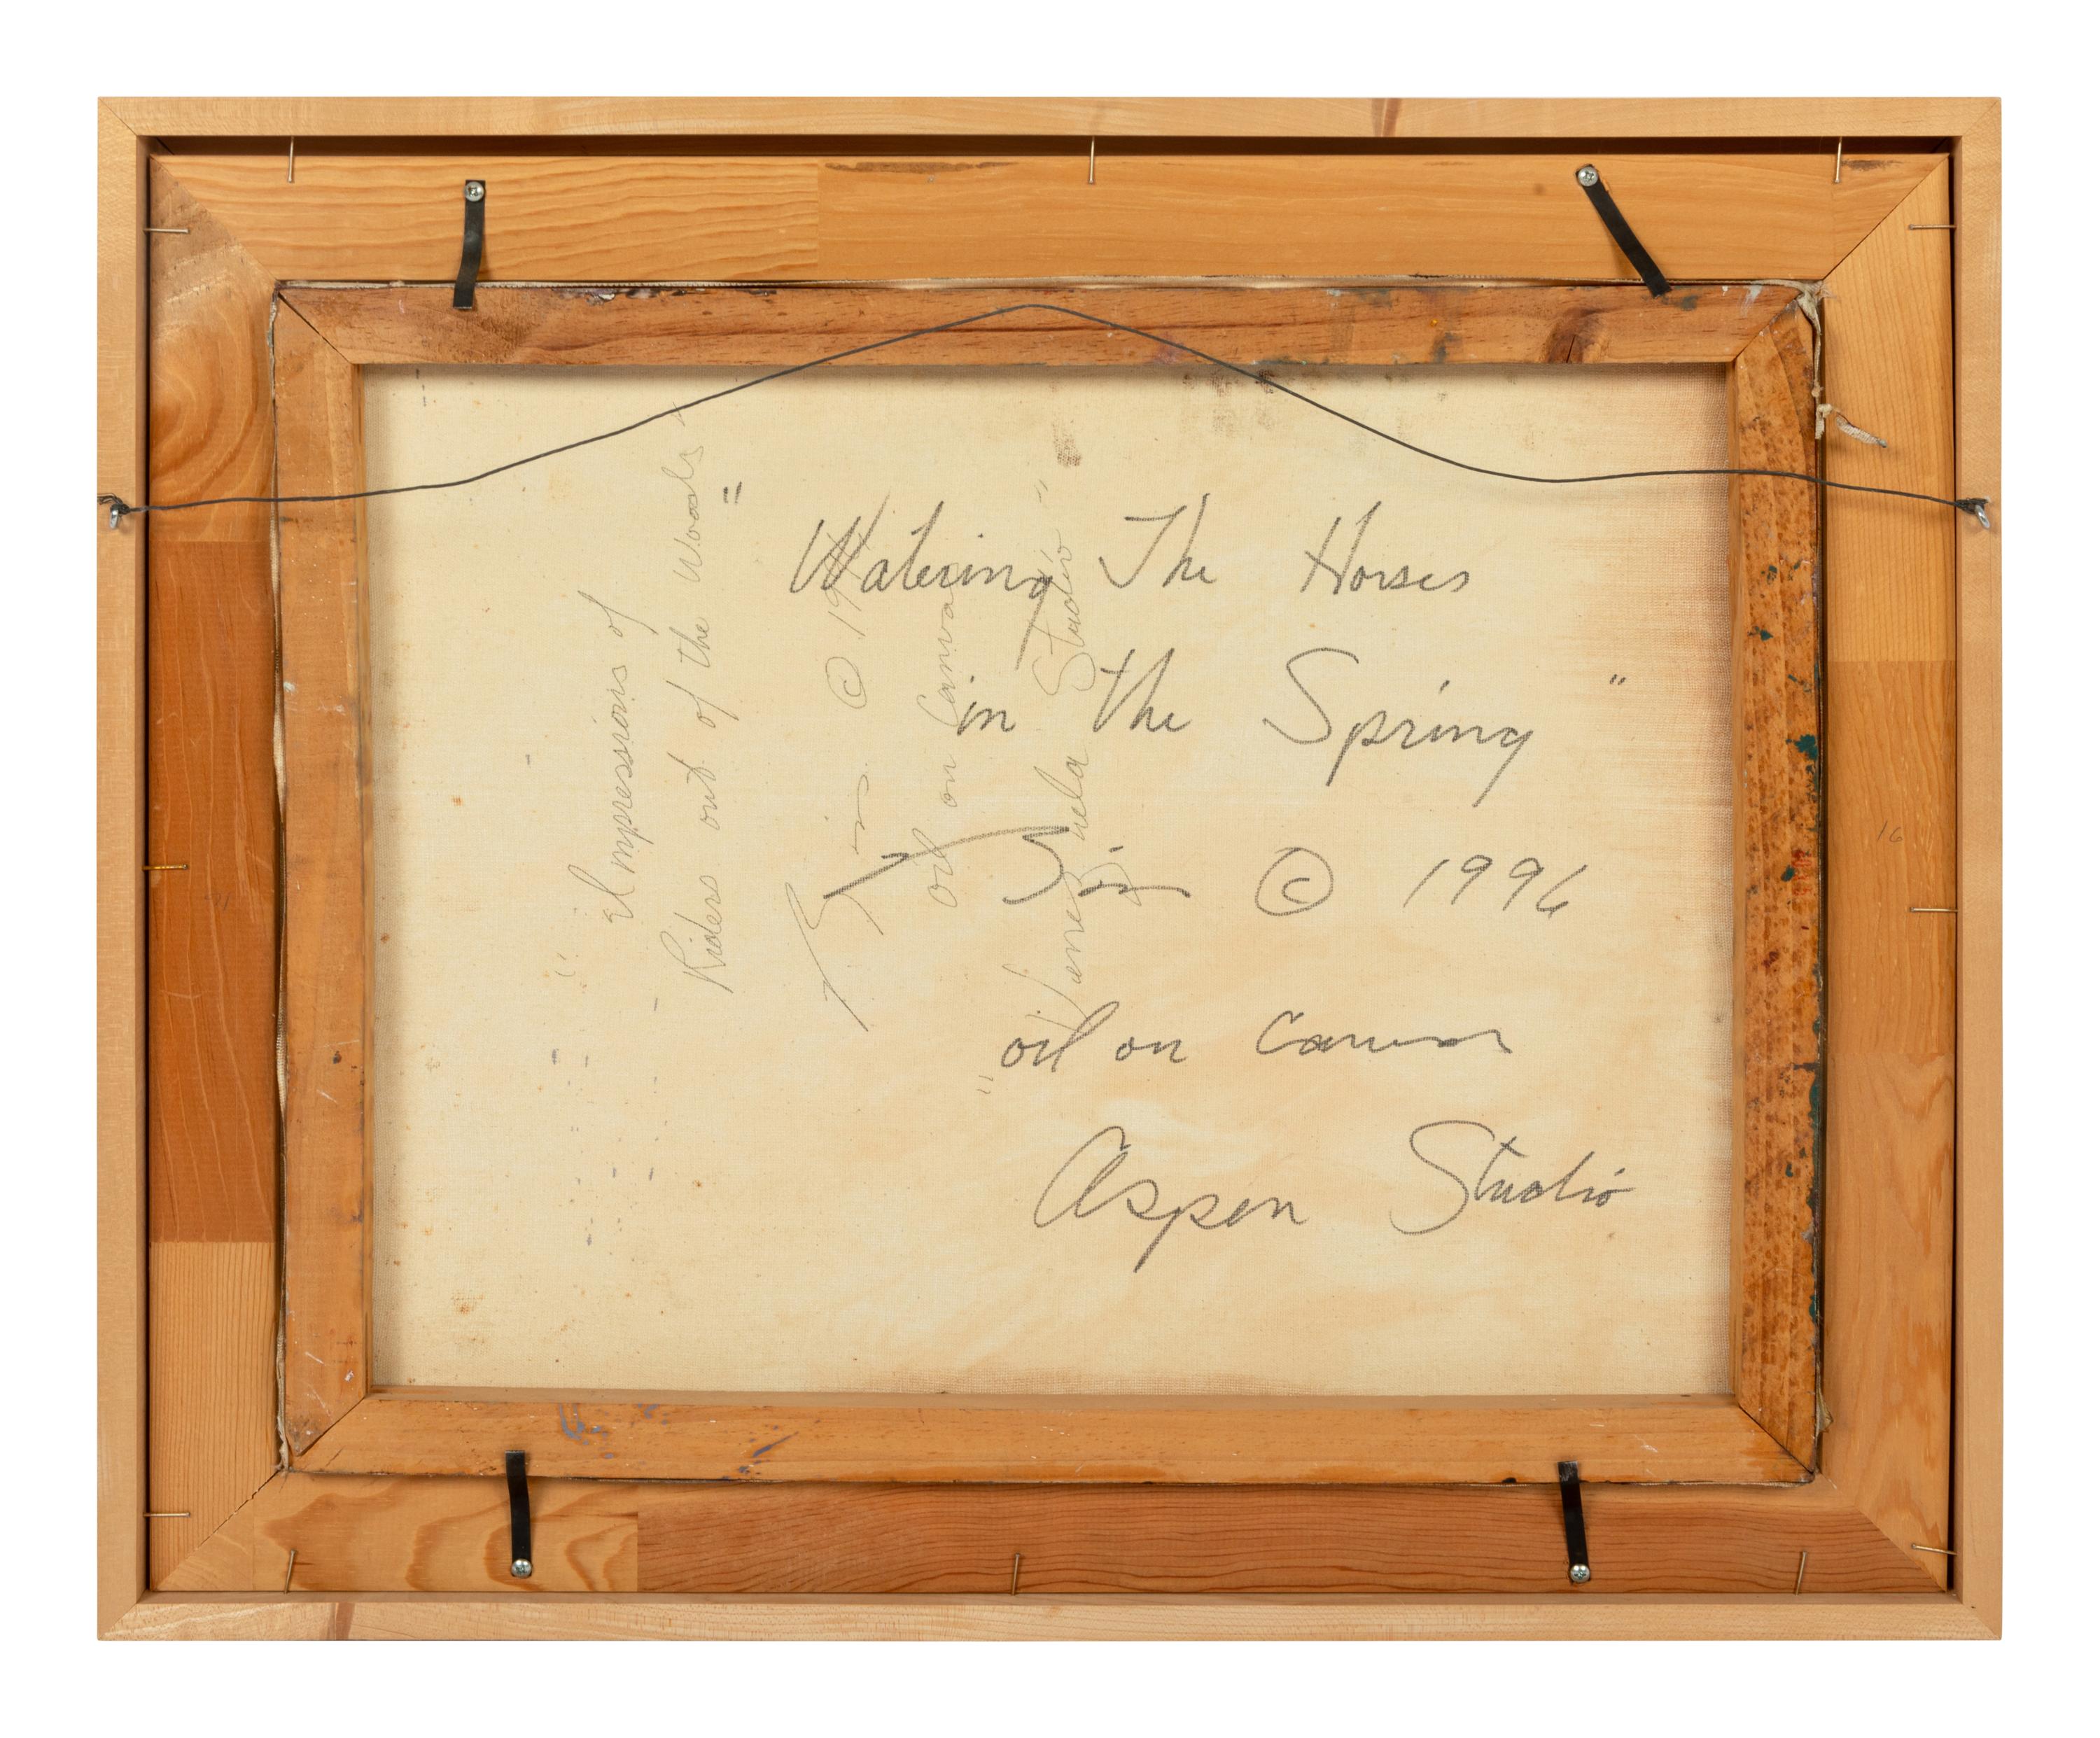 " Watering The Horses
in the Spring "
© 1996
oil on Canvas
Aspen Studio
" Impressions of
Riders out of the Woods "
© 19
oil on Canvas
" Studio "
16